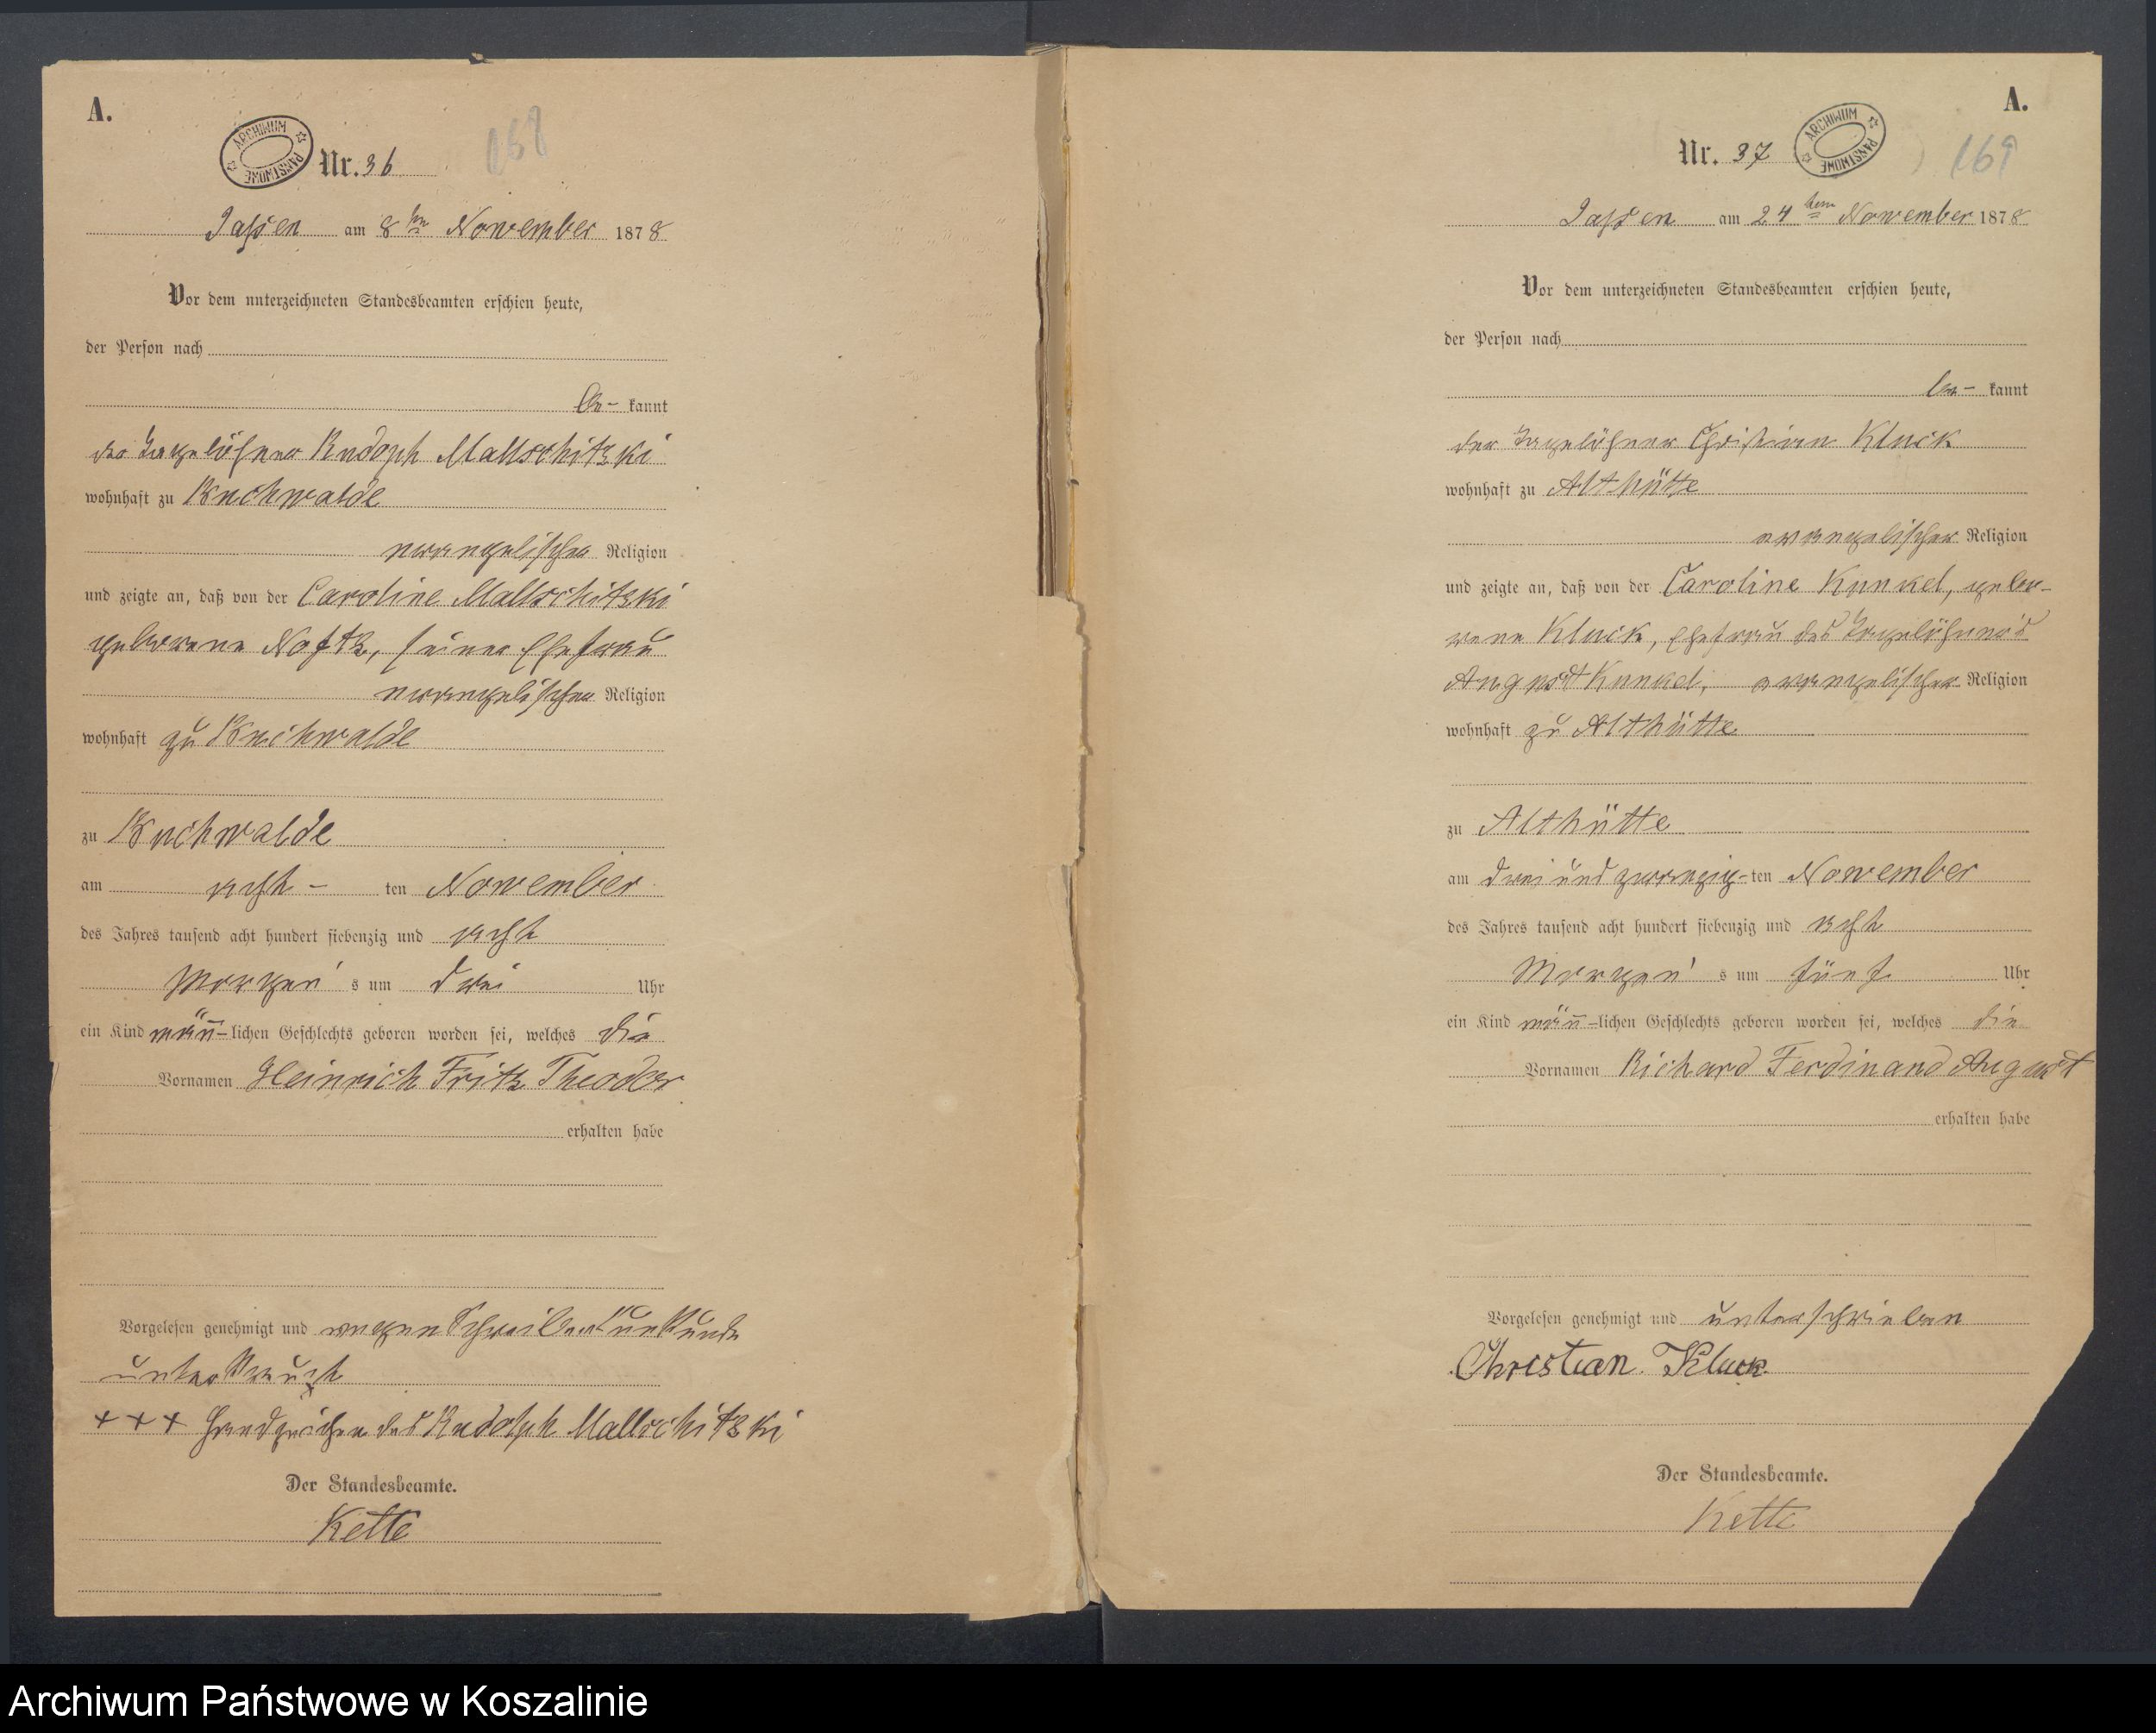 A.
ARCHIWUM PAŃSTWOWE
Nr. 36
168
Jassen am 8ten November 1878
Vor dem unterzeichneten Standesbeamten erschien heute,
der Person nach
be- kannt
der Tagelöhner Rudoph Mallschitzki
wohnhaft zu Buchwalde
evangelischer Religion
und zeigte an, daß von der Caroline Mallschitzki
geborene Noftz, seiner Ehefrau
evangelischer Religion
wohnhaft zu Buchwalde
zu Buchwalde
am acht- ten November
des Jahres tausend acht hundert siebenzig und acht
Morgen's um drei Uhr
ein Kind männ-lichen Geschlechts geboren worden sei, welches die
Vornamen Heinrich Fritz Theodor
erhalten habe
Vorgelesen genehmigt und wegen Schreibensunkunde
unterkreuzt
+++ Handzeichen des Rudolph Mallschitzki
Der Standesbeamte.
Kette
A.
Nr. 37
ARCHIWUM PAŃSTWOWE
169
Jassen am 24ten November 1878
Vor dem unterzeichneten Standesbeamten erschien heute,
der Person nach
be- kannt
der Tagelöhner Christian Kluck
wohnhaft zu Althütte
evangelischer Religion
und zeigte an, daß von der Caroline Kunkel, gebo-
rene Kluck, Ehefrau des Tagelöhner's
August Kunkel, evangelischer Religion
wohnhaft zu Althütte
zu Althütte
am dreiundzwanzig-ten November
des Jahres tausend acht hundert siebenzig und acht
Morgen's um fünf Uhr
ein Kind männ-lichen Geschlechts geboren worden sei, welches die
Vornamen Richard Ferdinand August
erhalten habe
Vorgelesen genehmigt und unterschrieben
Christian Kluck
Der Standesbeamte.
Kette
Archiwum Państwowe w Koszalinie